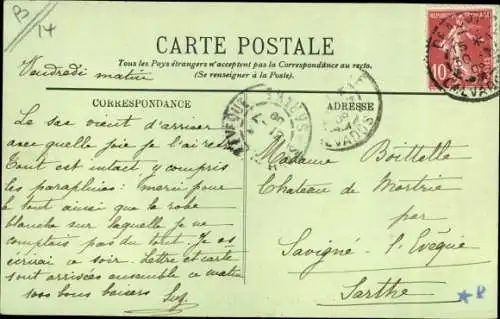 B/14
CARTE POSTALE
Tous les Pays étrangers n'acceptent pas la Correspondance au recto.
(Se renseigner à la Poste).
Vendredi matin
CORRESPONDANCE
ADRESSE
10
Le sac vient d'arriver
avec quelle joie je l'ai
Tout est intact y compris
les parapluies : merci pour
le tout ainsi que la robe
blanche sur laquelle je ne
comptais pas du tout. Je
écrirai ce soir. Lettre et carte
sont arrivées ensemble ce matin
1000 bons baisers
Madame Boittelle
Chateau de Mortrie
par
Savigné-l'Evêque
Sarthe